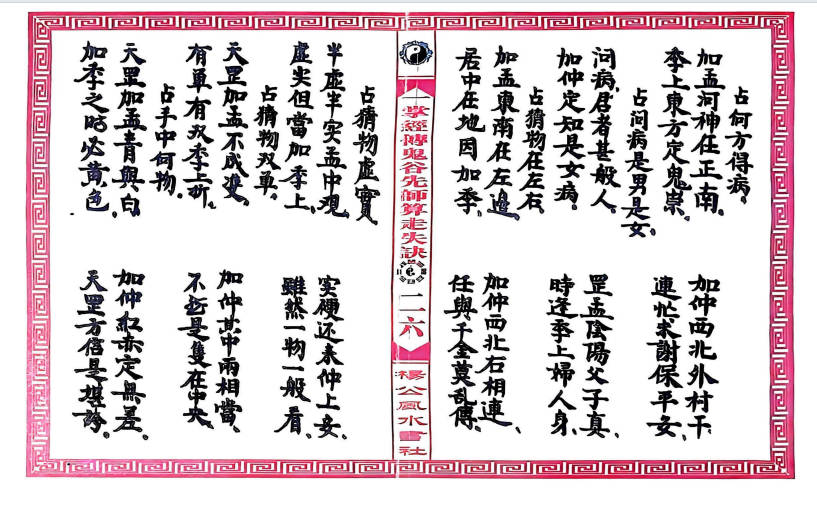 占何方得病。
加孟河神在正南。
加仲西北外村干
季上東方定鬼祟。
連忙求謝保平安、
占问病是男是女。
问病居者甚般人、
罡孟陰陽父子真、
加仲定知是女病。
時逢季上婦人身、
占猜物在左右
加孟東南在左邉
加仲西北右相連、
居中在地因加季。
任與千金莫乱傳。
一掌經傳鬼谷先師算走失訣
二一六
楊公風水書社
占猜物虛實
半虛半实孟中观、
实硬还来仲上安、
虛实但當加季上、
雖然一物一般看、
占猜物双单。
天罡加孟不成雙、
加仲其中兩相當、
有单有双季上折、
不折是隻在中央、
占手中何物。
天罡加孟青與白
加仲红赤定無差。
加季之时必黄色
天罡方信是堪誇。